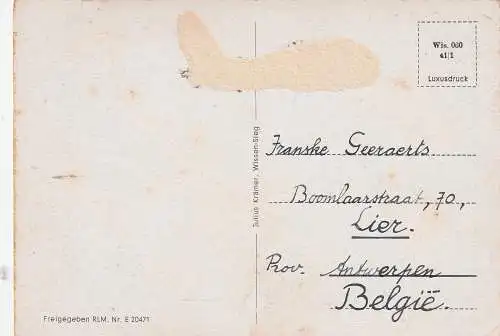 Wis. 060
41/1
Luxusdruck
Julius Krämer, Wissen-Sieg
Franske Geeraerts
Boomlaarstraat, 70,
Lier.
Prov. Antwerpen
België.
Freigegeben RLM. Nr. E 20471